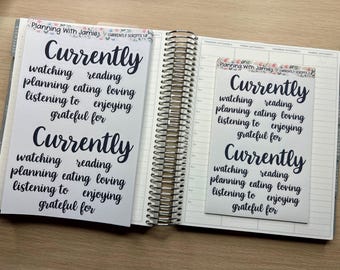 Planning With Jamie
CURRENTLY SCRIPTS
Currently
watching reading
planning eating loving
listening to enjoying
grateful for
Currently
watching reading
planning eating loving
listening to enjoying
grateful for
Planning With Jamie
Currently
watching reading
planning eating loving
listening to enjoying
grateful for
Currently
watching reading
planning eating loving
listening to enjoying
grateful for